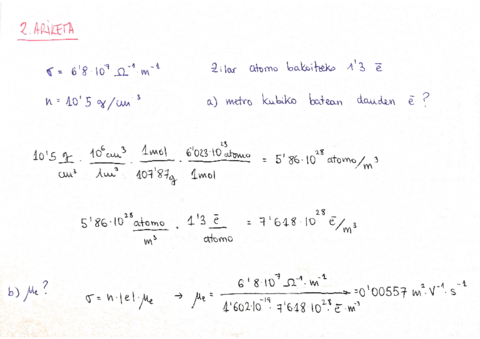 2. ARIKETA
σ = 6'8·10⁷ Ω⁻¹·m⁻¹ Zilar atomo bakoitzeko 1'3 ē
n = 10'5 g/cm³ a) metro kubiko batean dauden ē?
10'5 g/cm³ · 10⁶cm³/1m³ · 1mol/107'87g · 6'023·10²³atomo/1mol = 5'86·10²⁸ atomo/m³
5'86·10²⁸ atomo/m³ · 1'3 ē/atomo = 7'618·10²⁸ ē/m³
b) μe? σ = n·|e|·μe → μe = 6'8·10⁷ Ω⁻¹·m⁻¹/1'602·10⁻¹⁹·7'618·10²⁸·ē·m⁻³ = 0'00557 m²·V⁻¹·s⁻¹